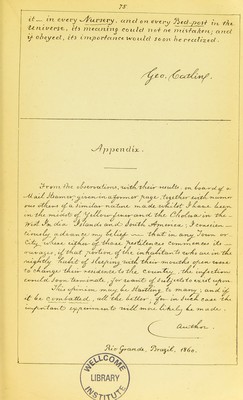 78
it — in every Nursery, and on every Bed-post in the
Universe, its meaning could not be mistaken; and
if obeyed, its importance would soon be realized.
Geo. Catlin.
Appendix.
From the observations, with their results, on board of a
Mail Steamer given on a former page, together with numer
ous others of a similar nature made whilst I have been
in the midst of Yellow fever and the Cholera in the
West India Islands and South America, I conscien-
tiously advance my belief — that in any Town or
City, where either of those pestilences commences its
ravages, if that portion of the inhabitants who are in the
nightly habit of sleeping with their mouths open were
to change their residence to the country, the infection
would soon terminate, for want of subjects to exist upon.
This opinion may be startling to many; and if
it be combatted, all the better, for in such case the
important experiment will more likely be made.
Author.
Rio Grande, Brazil, 1860.
WELLCOME
LIBRARY
INSTITUTE